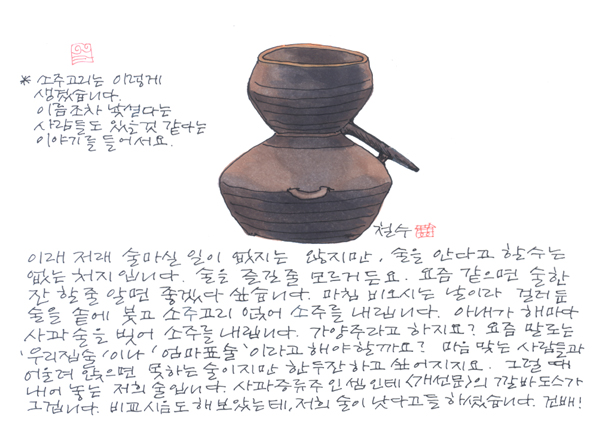 * 소주고리는 이렇게
생겼습니다.
이름조차 낯설다는
사람들도 있을것 같다는
이야기를 들어서요.
철수
이래 저래 술마실 일이 없지는 않지만, 술을 안다고 할수는
없는 처지입니다. 술을 즐길줄 모르거든요. 요즘 같으면 술한
잔 할줄 알면 좋겠다 싶습니다. 마침 비오시는 날이라 걸러둔
술을 솥에 붓고 소주고리 얹어 소주를 내립니다. 아내가 해마다
사과술을 빚어 소주를 내립니다. 가양주라고 하지요? 요즘 말로는
'우리집술'이나 '엄마표술'이라고 해야할까요? 마음 맞는 사람들과
어울려 앉으면 못하는 술이지만 한두잔하고 싶어지지요. 그럴 때
내어 놓는 저희 술입니다. 사과증류주인 셈인데 <개선문>의 깔바도스가
그겁니다. 비교시음도 해보았는데, 저희 술이 낫다고들 하셨습니다. 건배!